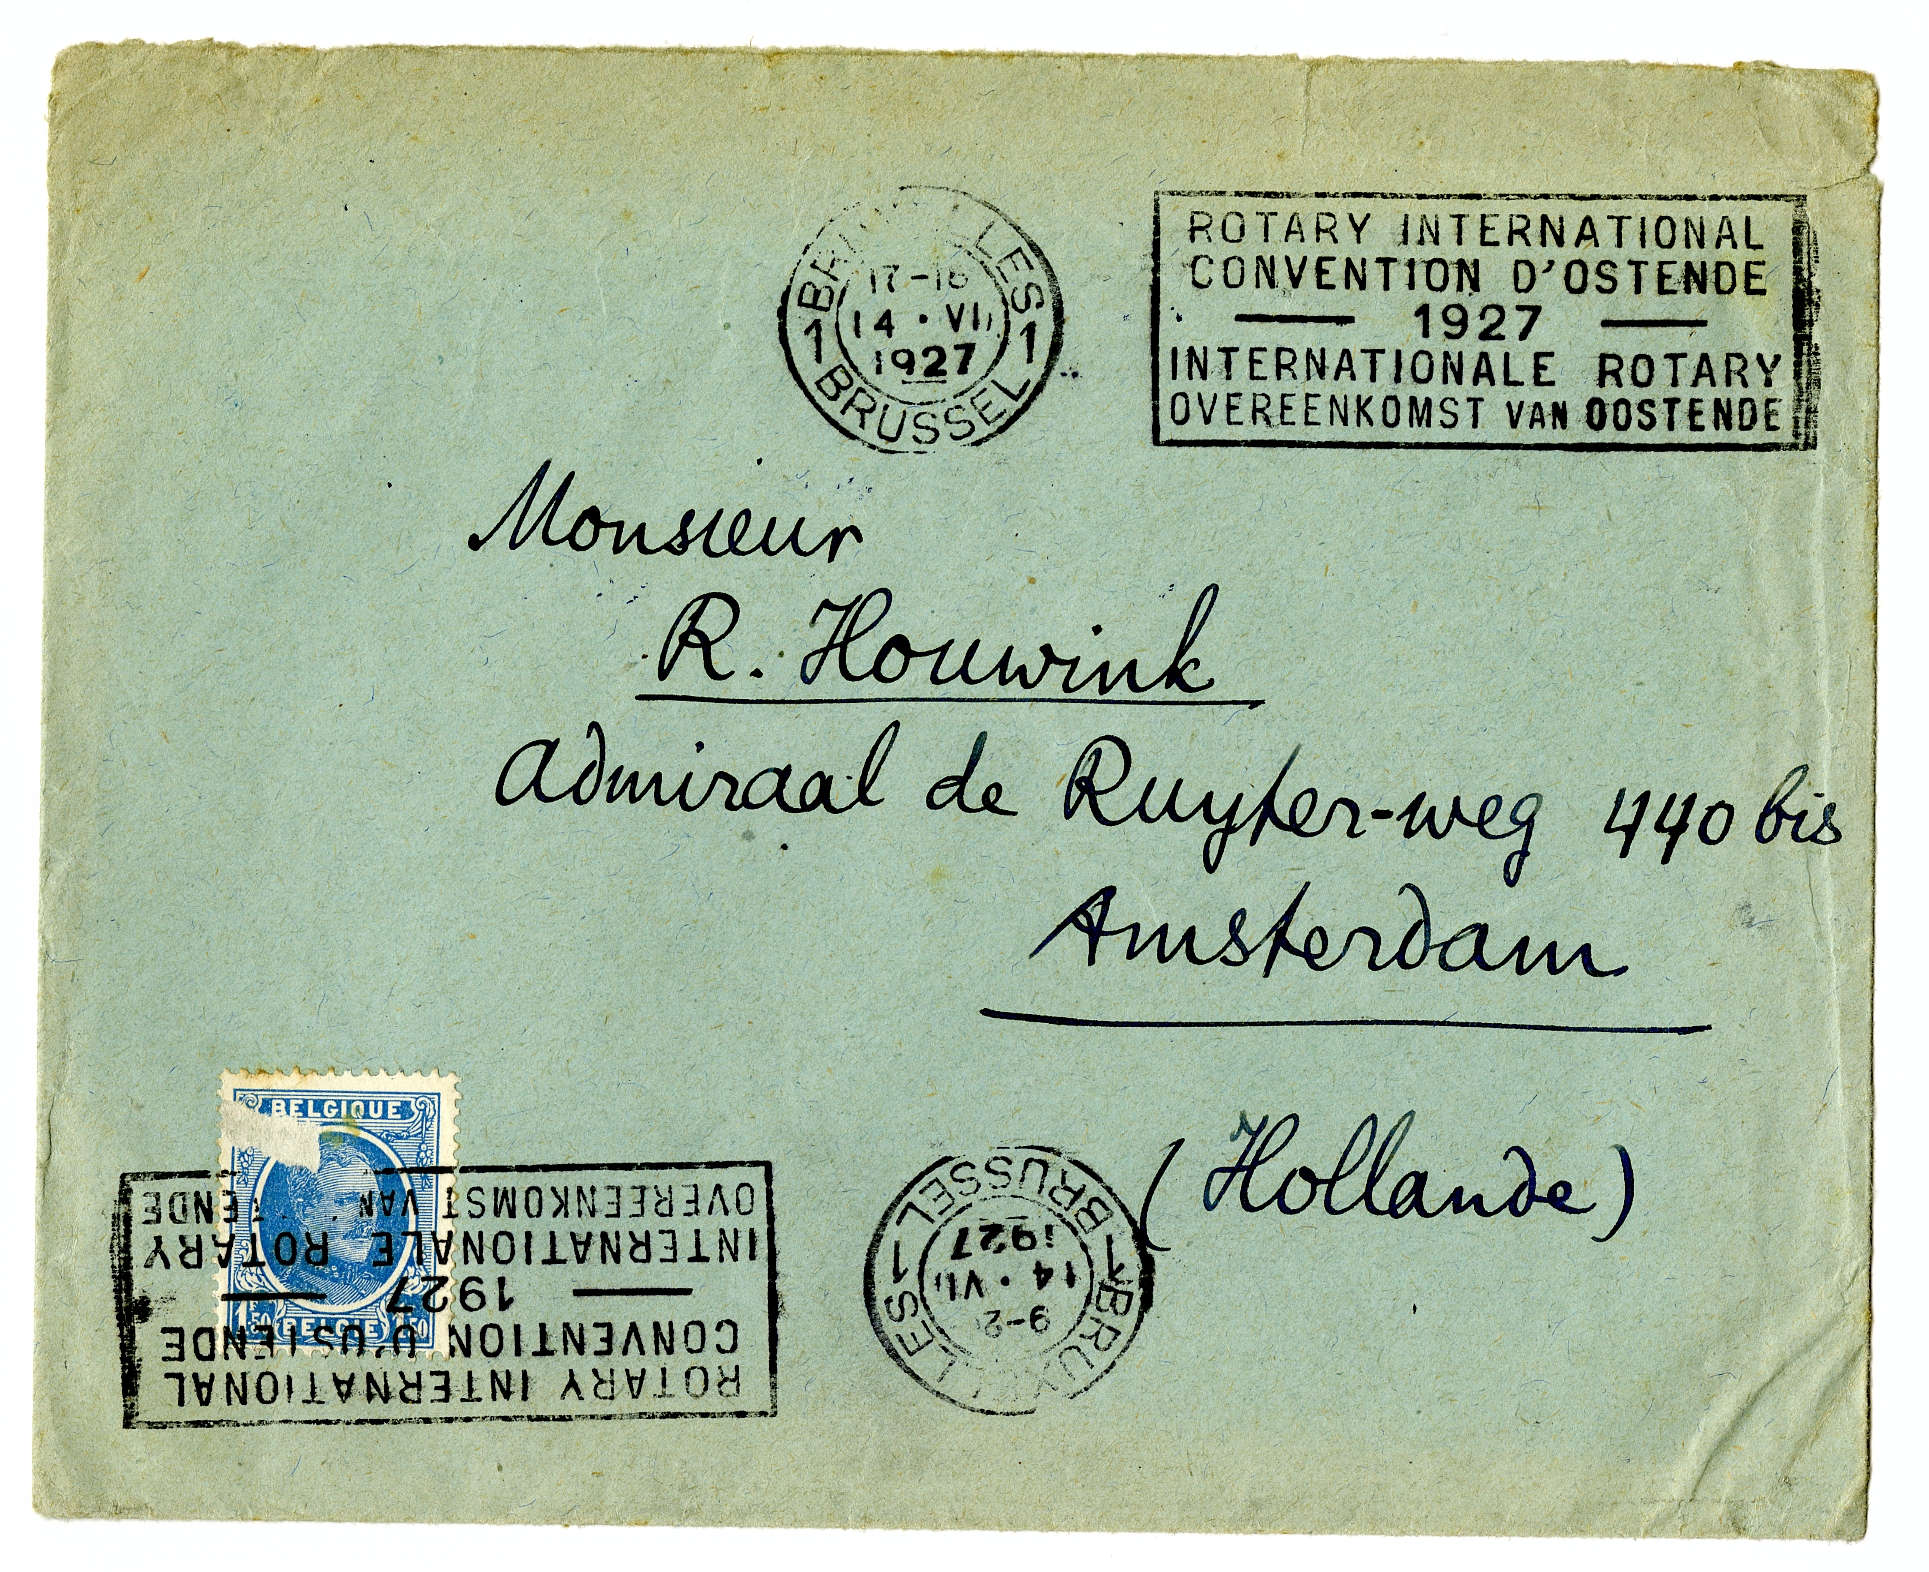 BRUXELLES
17-18
14 · VI
1927
1 1
BRUSSEL
ROTARY INTERNATIONAL
CONVENTION D'OSTENDE
1927
INTERNATIONALE ROTARY
OVEREENKOMST VAN OOSTENDE
Monsieur
R. Houwink
Admiraal de Ruyter-weg 440 bis
Amsterdam
(Hollande)
BELGIQUE
BELGIE
ROTARY INTERNATIONAL
CONVENTION D'OSTENDE
1927
INTERNATIONALE ROTARY
OVEREENKOMST VAN TENDE
BRUXELLES
14 · VI
1927
1 1
BRUSSEL